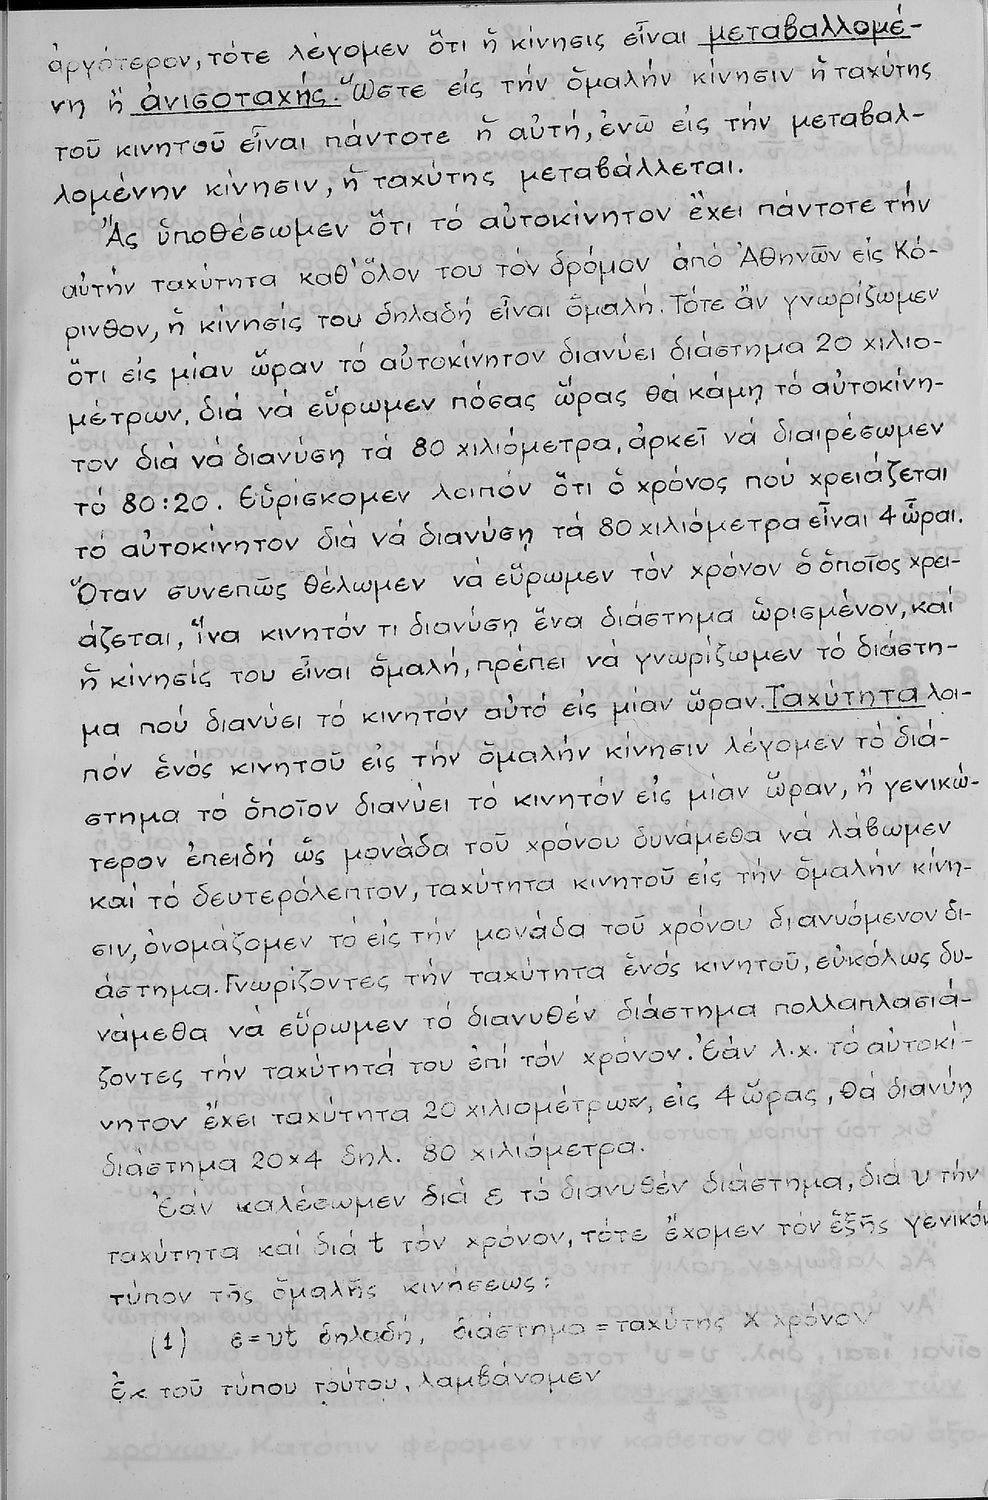 ἀργότερον, τότε λέγομεν ὅτι ἡ κίνησις εἶναι μεταβαλλομέ-
νη ἤ ἀνισοταχής. Ὥστε εἰς τήν ὁμαλήν κίνησιν ἡ ταχύτης
τοῦ κινητοῦ εἶναι πάντοτε ἡ αὐτή, ἐνῶ εἰς τήν μεταβαλ-
λομένην κίνησιν, ἡ ταχύτης μεταβάλλεται.
Ἄς ὑποθέσωμεν ὅτι τό αὐτοκίνητον ἔχει πάντοτε τήν
αὐτήν ταχύτητα καθ' ὅλον του τόν δρόμον ἀπό Ἀθηνῶν εἰς Κό-
ρινθον, ἡ κίνησίς του δηλαδή εἶναι ὁμαλή. Τότε ἄν γνωρίζωμεν
ὅτι εἰς μίαν ὥραν τό αὐτοκίνητον διανύει διάστημα 20 χιλιο-
μέτρων, διά νά εὕρωμεν πόσας ὥρας θά κάμῃ τό αὐτοκίνη-
τον διά νά διανύσῃ τά 80 χιλιόμετρα, ἀρκεῖ νά διαιρέσωμεν
τό 80:20. Εὑρίσκομεν λοιπόν ὅτι ὁ χρόνος πού χρειάζεται
τό αὐτοκίνητον διά νά διανύσῃ τά 80 χιλιόμετρα εἶναι 4 ὧραι.
Ὅταν συνεπῶς θέλωμεν νά εὕρωμεν τόν χρόνον ὁ ὁποῖος χρει-
άζεται, ἵνα κινητόν τι διανύσῃ ἕνα διάστημα ὡρισμένον, καί
ἡ κίνησίς του εἶναι ὁμαλή, πρέπει νά γνωρίζωμεν τό διάστη-
μα πού διανύει τό κινητόν αὐτό εἰς μίαν ὥραν. Ταχύτητα λοι-
πόν ἑνός κινητοῦ εἰς τήν ὁμαλήν κίνησιν λέγομεν τό διά-
στημα τό ὁποῖον διανύει τό κινητόν εἰς μίαν ὥραν, ἤ γενικώ-
τερον ἐπειδή ὡς μονάδα τοῦ χρόνου δυνάμεθα νά λάβωμεν
καί τό δευτερόλεπτον, ταχύτητα κινητοῦ εἰς τήν ὁμαλήν κίνη-
σιν, ὀνομάζομεν τό εἰς τήν μονάδα τοῦ χρόνου διανυόμενον δι-
άστημα. Γνωρίζοντες τήν ταχύτητα ἑνός κινητοῦ, εὐκόλως δυ-
νάμεθα νά εὕρωμεν τό διανυθέν διάστημα πολλαπλασιά-
ζοντες τήν ταχύτητά του ἐπί τόν χρόνον. Ἐάν λ.χ. τό αὐτοκί-
νητον ἔχει ταχύτητα 20 χιλιομέτρων, εἰς 4 ὥρας, θά διανύῃ
διάστημα 20×4 δηλ. 80 χιλιόμετρα.
Ἐάν καλέσωμεν διά ε τό διανυθέν διάστημα, διά υ τήν
ταχύτητα καί διά t τόν χρόνον, τότε ἔχομεν τόν ἑξῆς γενικόν
τύπον τῆς ὁμαλῆς κινήσεως:
(1) ε=υt δηλαδή, διάστημα = ταχύτης × χρόνον
Ἐκ τοῦ τύπου τούτου, λαμβάνομεν